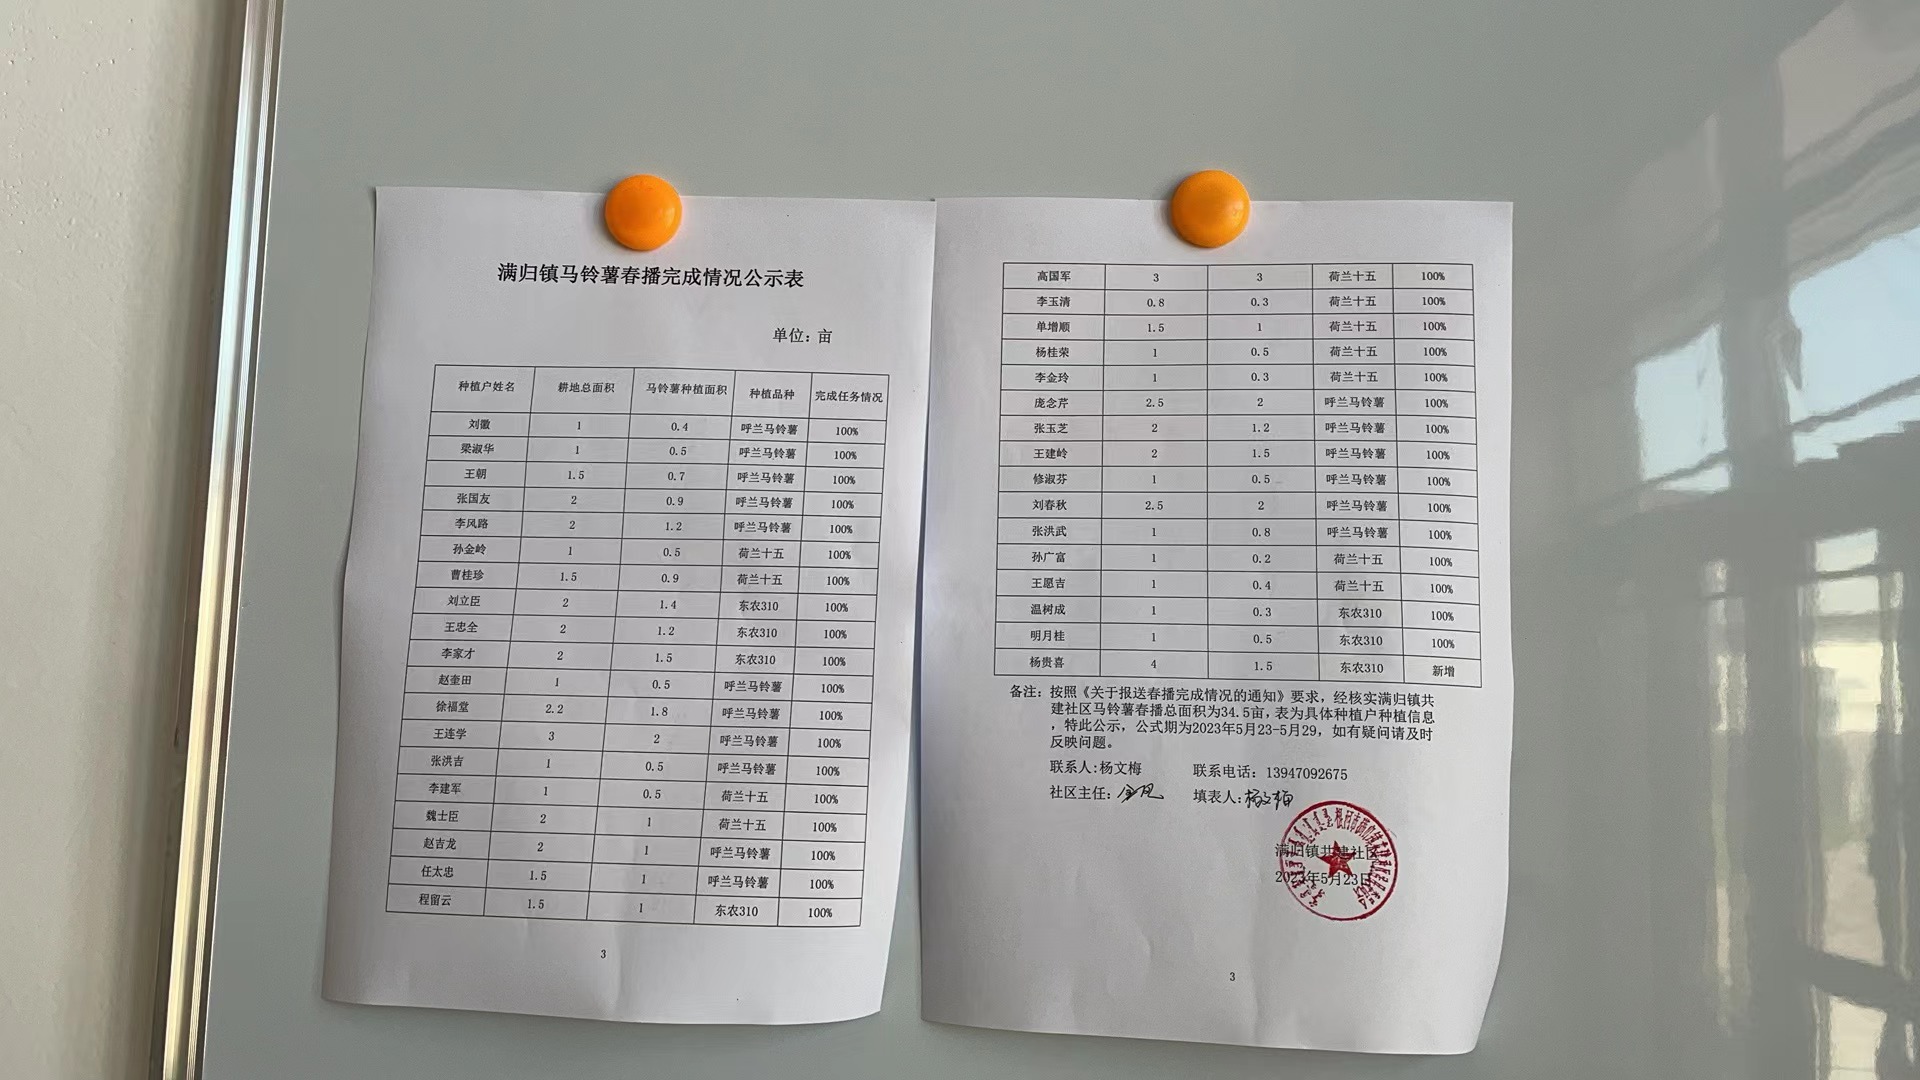 满归镇马铃薯春播完成情况公示表
单位：亩
种植户姓名 耕地总面积 马铃薯种植面积 种植品种 完成任务情况
刘徽 1 0.4 呼兰马铃薯 100%
梁淑华 1 0.5 呼兰马铃薯 100%
王朝 1.5 0.7 呼兰马铃薯 100%
张国友 2 0.9 呼兰马铃薯 100%
李风路 2 1.2 呼兰马铃薯 100%
孙金岭 1 0.5 荷兰十五 100%
曹桂珍 1.5 0.9 荷兰十五 100%
刘立臣 2 1.4 东农310 100%
王忠全 2 1.2 东农310 100%
李家才 2 1.5 东农310 100%
赵奎田 1 0.5 呼兰马铃薯 100%
徐福堂 2.2 1.8 呼兰马铃薯 100%
王连学 3 2 呼兰马铃薯 100%
张洪吉 1 0.5 呼兰马铃薯 100%
李建军 1 0.5 荷兰十五 100%
魏士臣 2 1 荷兰十五 100%
赵吉龙 2 1 呼兰马铃薯 100%
任太忠 1.5 1 呼兰马铃薯 100%
程留云 1.5 1 东农310 100%
3
高国军 3 3 荷兰十五 100%
李玉清 0.8 0.3 荷兰十五 100%
单增顺 1.5 1 荷兰十五 100%
杨桂荣 1 0.5 荷兰十五 100%
李金玲 1 0.3 荷兰十五 100%
庞念芹 2.5 2 呼兰马铃薯 100%
张玉芝 2 1.2 呼兰马铃薯 100%
王建岭 2 1.5 呼兰马铃薯 100%
修淑芬 1 0.5 呼兰马铃薯 100%
刘春秋 2.5 2 呼兰马铃薯 100%
张洪武 1 0.8 呼兰马铃薯 100%
孙广富 1 0.2 荷兰十五 100%
王愿吉 1 0.4 荷兰十五 100%
温树成 1 0.3 东农310 100%
明月桂 1 0.5 东农310 100%
杨贵喜 4 1.5 东农310 新增
备注：按照《关于报送春播完成情况的通知》要求，经核实满归镇共
建社区马铃薯春播总面积为34.5亩，表为具体种植户种植信息
，特此公示，公式期为2023年5月23-5月29，如有疑问请及时
反映问题。
联系人:杨文梅 联系电话：13947092675
社区主任： 填表人：杨文梅
满归镇共建社区
2023年5月23日
3